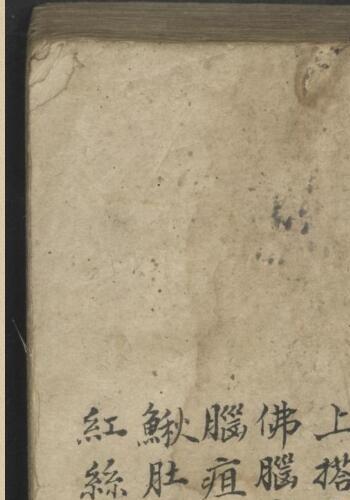 上搭
佛腦
腦疽
鰍肚
紅絲